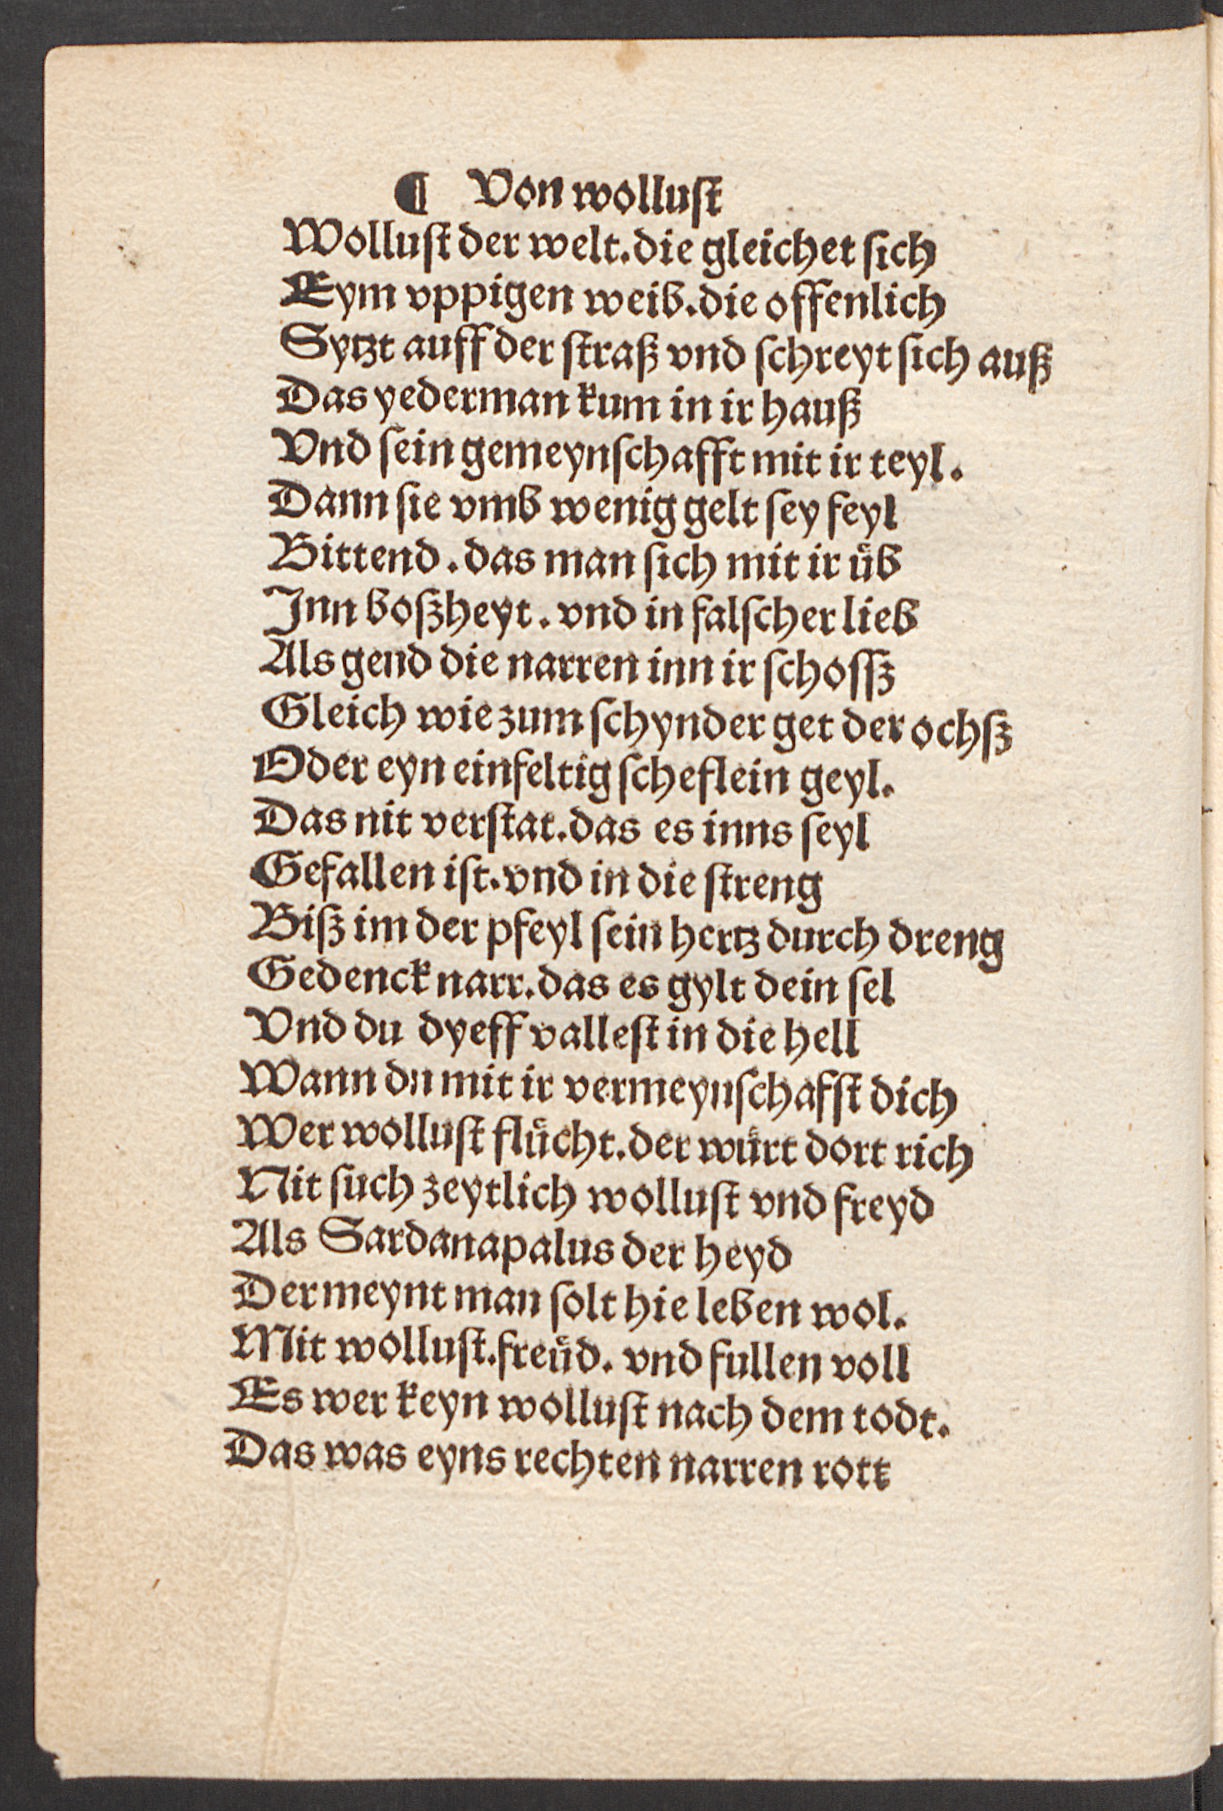 ¶ Von wolluſt
Wolluſt der welt. die gleichet ſich
Eym vppigen weib. die offenlich
Sytzt auff der ſtraß vnd ſchreyt ſich auß
Das yederman kum in ir hauß
Vnd ſein gemeynſchafft mit ir teyl.
Dann ſie vmb wenig gelt ſey feyl
Bittend. das man ſich mit ir uͤb
Inn boſzheyt. vnd in falſcher lieb
Als gend die narren inn ir ſchoſſz
Gleich wie zum ſchynder get der ochſz
Oder eyn einfeltig ſcheflein geyl.
Das nit verſtat. das es inns ſeyl
Gefallen iſt. vnd in die ſtreng
Biſz im der pfeyl ſein hertz durch dreng
Gedenck narr. das es gylt dein ſel
Vnd du dyeff valleſt in die hell
Wann dn mit ir vermeynſchafſt dich
Wer wolluſt fluͤcht. der wuͤrt dort rich
Nit ſuch zeytlich wolluſt vnd freyd
Als Sardanapalus der heyd
Der meynt man ſolt hie leben wol.
Mit wolluſt. freuͤd. vnd fullen voll
Es wer keyn wolluſt nach dem todt.
Das was eyns rechten narren rott